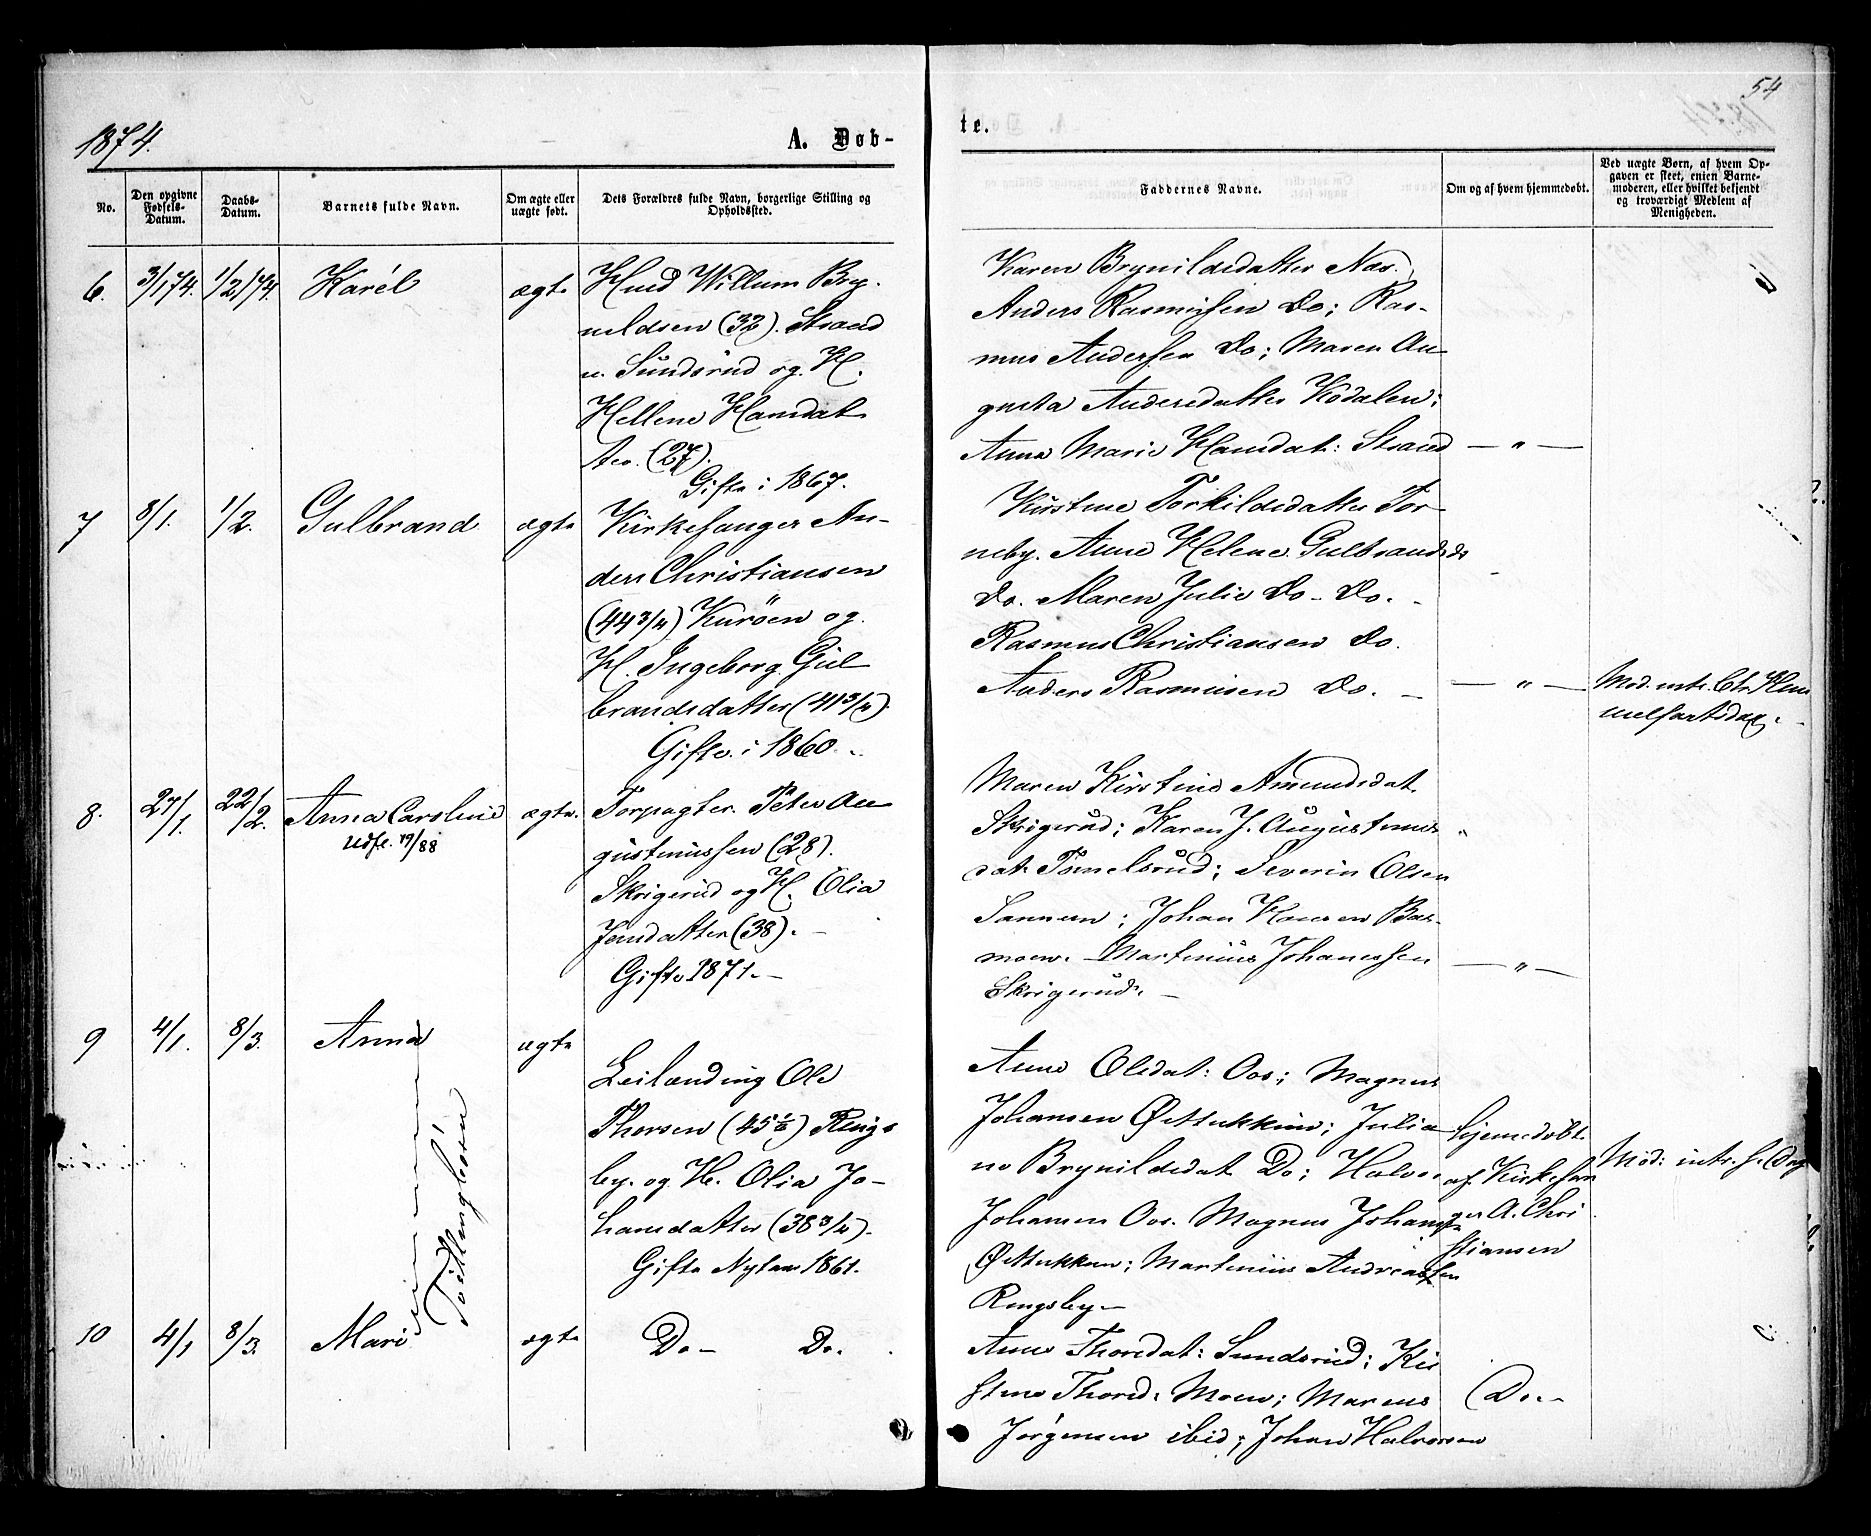 54
1874.
A. Døb-
te.
No.
Den opgivne Fødsels-Datum.
Daabs-Datum.
Barnets fulde Navn.
Om ægte eller uægte født.
Dets Forældres fulde Navn, borgerlige Stilling og Opholdssted.
Faddernes Navne.
Om og af hvem hjemmedøbt.
Ved uægte Børn, af hvem Op-
gaven er skeet, enten Barne-
moderen, eller hvilket bekjendt
og troværdigt Medlem af
Menigheden.
6. 3/1 74. 1/2 74. Karél ægte
Knud Willum Bry-
nildsen (32). Strand
u. Sundsrud og H.
Hellene Hansdat
ter. (27).
Gifte i 1867.
Karen Brynildsdatter Næs.
Anders Rasmussen Do; Ras-
mus Andersen Do; Maren Au
gusta Andersdatter Kodalen;
Anne Marie Hansdat: Strand
— " —
7 8/1. 1/2. Gulbrand ægte
Kirkesanger An-
ders Christiansen
(44 3/4) Kurøen og
H. Ingeborg Gul
brandsdatter (41 3/4).
Gifte i 1860.
Kirstine Torkildsdatter Tor
neby. Anne Helene Gulbrandsd
Do. Maren Julie Do- Do. -
Rasmus Christiansen Do.
Anders Rasmusen Do. -
— " —
Mod. intr. Chr. Him
melfartsdag.
8. 27/1. 22/2. Anna Caroline ægte.
Udfl. 19/88
Torpagter Peter Au
gustinussen (28).
Skrigerud og H. Olia
Jensdatter (38). -
Gifte 1871. -
Maren Kirstine Amundsdat.
Skrigerud; Karen J. Augustinus
dat Tomelsrud; Severin Olsen
Sannum; Johan Hansen Bas-
moen. - Martinius Johanessen
Skrigerud. -
— " —
9 4/1. 8/3. Anna ægte
Tvillingbørn
Leilænding Ole
Thorsen (45 1/2) Rings
by og H. Olia Jo-
hansdatter (38 3/4).
Gifte Nytaar 1861.
Anne Olsdat: Oos; Magnus
Johansen Østukkun; Julia
ne Brynildsdat Do; Halvor
Johansen Oos. Magnus Johans
Østukkun; Martinius Andreassen
Ringsby -
hjemedøbt
af Kirkesan
ger A. Chri
stiansen
Mod: intr. s. Dag
10 4/1 8/3. Mari ægte
Do- Do.
Anne Thorsdat: Sundsrud; Kir
stine Thorsd: Moen; Marcus
Jørgensen ibid; Johan Halvorsen
Do. -